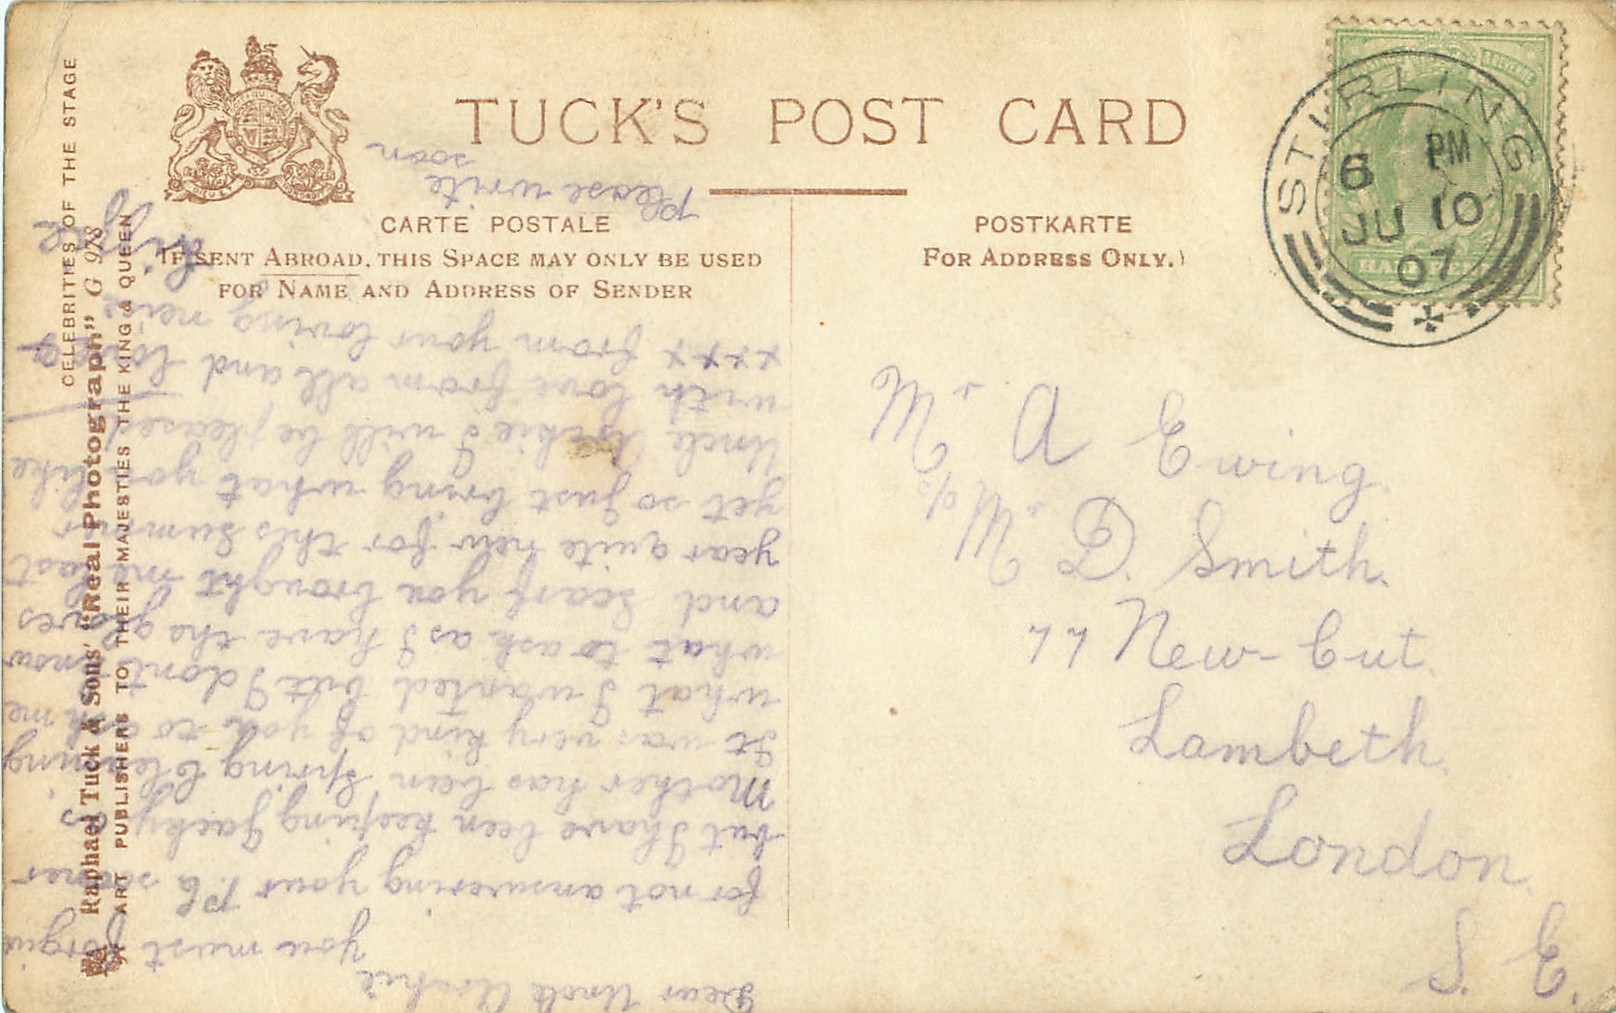 TUCK'S POST CARD
CARTE POSTALE
IF SENT ABROAD, THIS SPACE MAY ONLY BE USED
FOR NAME AND ADDRESS OF SENDER
POSTKARTE
FOR ADDRESS ONLY.
CELEBRITIES OF THE STAGE
Raphael Tuck & Sons' "Real Photograph" G 978
ART PUBLISHERS TO THEIR MAJESTIES THE KING & QUEEN
STIRLING
6 PM
JU 10
07
REVENUE
Mr A Ewing
c/o Mr D. Smith.
77 New-Cut.
Lambeth.
London.
S. E.
Dear Uncle Archie
you must forgive
for not answering your P.C sooner
but I have been keeping Jacky as
Mother has been spring cleaning.
It was very kind of you to ask me
what I wanted but I dont know
what to ask as I have the gloves
and scarf you brought me last
year quite new for this summer
yet so just bring what you like
Uncle Archie I will be pleased
with love from all and
xxxx from your loving
Please write
soon